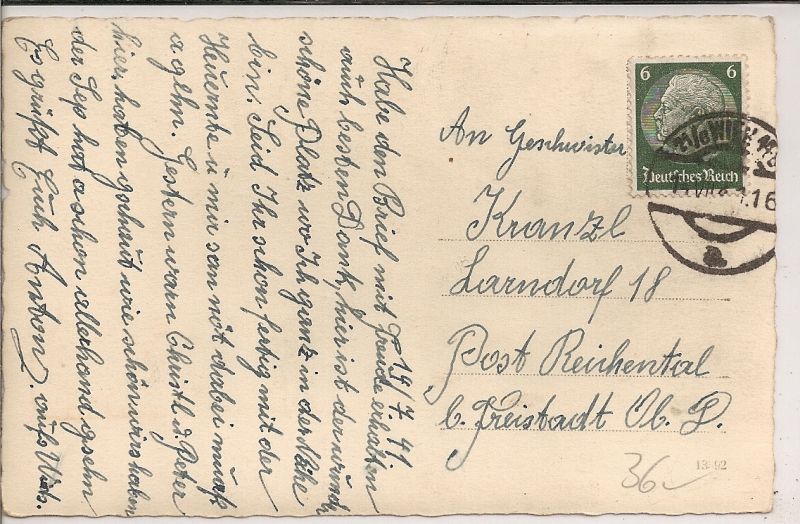 19/7. 41.
Habe den Brief mit Freude erhalten
auch besten Dank, hier ist der wunder
schöne Platz wo Ich ganz in der Nähe
bin. Seid Ihr schon fertig mit der
Heuernte u mir san nöt dabei muaß
a gehn. Gestern warn Christl u. Peter
hier, haben gschaut wie schön wirs haben
der Sep hat a schon allerhand gsehn
Es grüßt Euch Anton. aufs Wds.
6 6
Deutsches Reich
An Geschwister
Kranzl
Larndorf 18
Post Reichental
b. Freistadt Ob. D.
36
13 92